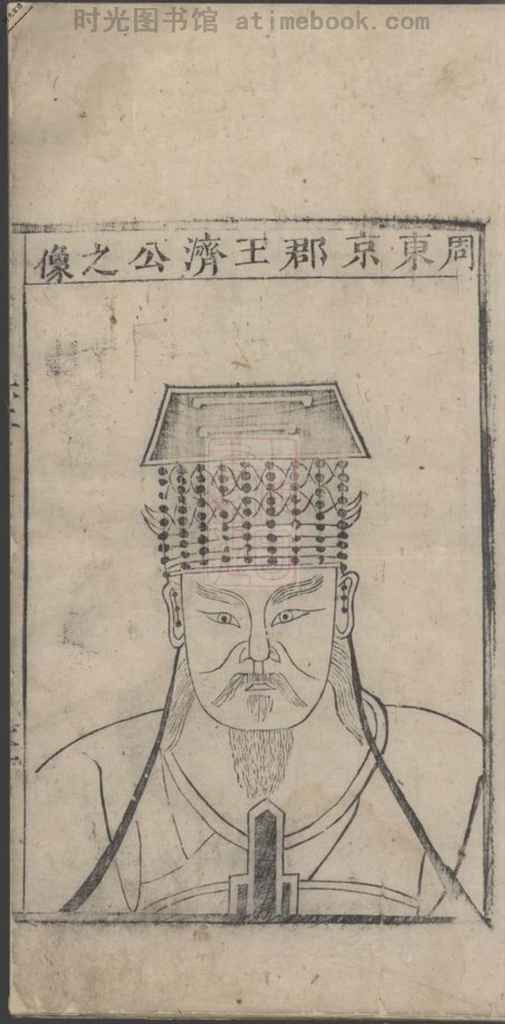 时光图书馆 atimebook.com
周東京郡王濟公之像